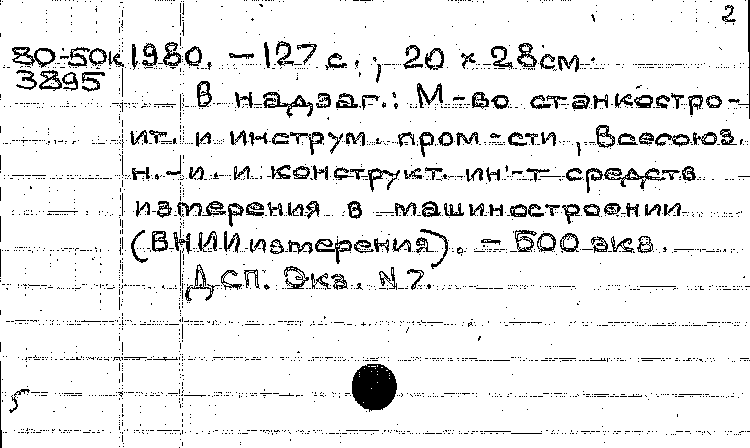 2
80-50к 1980. - 127 с.; 20 × 28см.
3895
В надзаг.: М-во станкостро-
ит. и инструм. пром-сти, Всесоюз.
н.-и. и конструкт. ин-т средств
измерения в машиностроении
(ВНИИизмерения). - 500 экз.
ДСП. Экз. N 7.
5